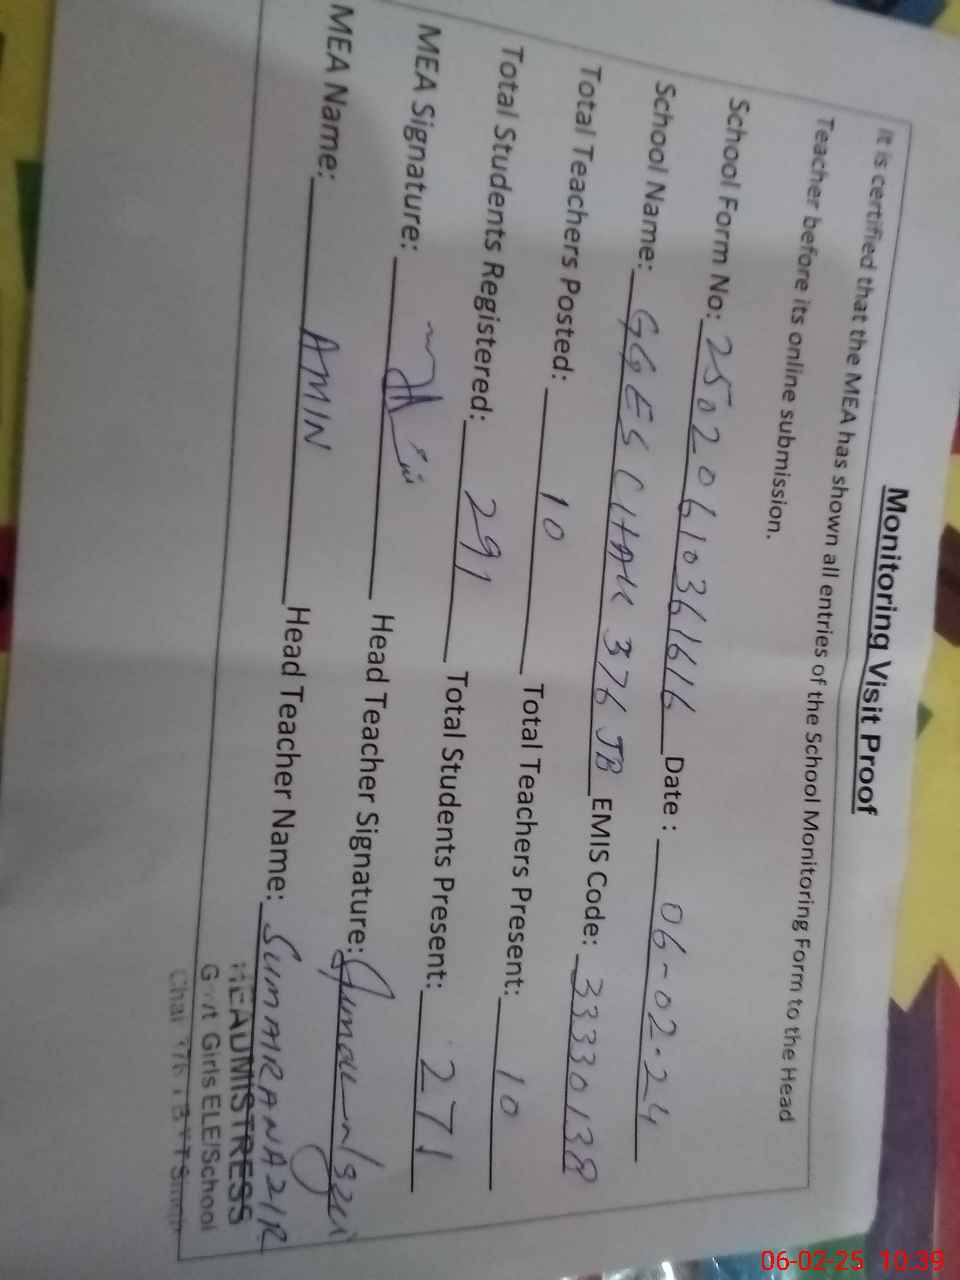 Monitoring Visit Proof
It is certified that the MEA has shown all entries of the School Monitoring Form to the Head
Teacher before its online submission.
School Form No: 25020610361616 Date: 06-02-24
School Name: GGES CHAK 376 JB EMIS Code: 33330138
Total Teachers Posted: 10 Total Teachers Present: 10
Total Students Registered: 291 Total Students Present: 271
MEA Signature: Head Teacher Signature:
MEA Name: AMIN Head Teacher Name: SUMAIRA NAZIR
HEADMISTRESS
Govt Girls ELE/School
06-02-25 10:39